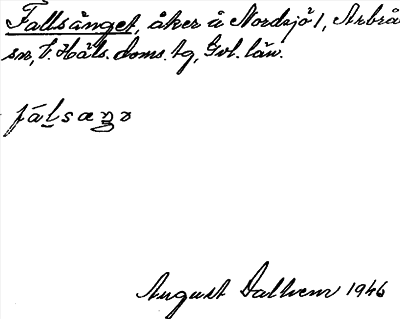 Fallsänget, åker å Nordsjö 1, Arbrå
sn, V. Häls. doms. tg, Gvl. län.
August Dalhem 1946